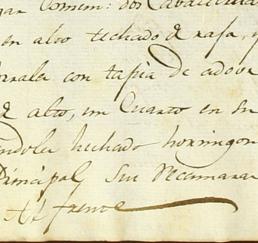 gar Comun: dos Cavalleriza
en alto techado d rafa, y
orrales con tapia de adove
d alto, un Cuarto en su
ndola hechado hormigon
Principal Su Recamara
Al frente